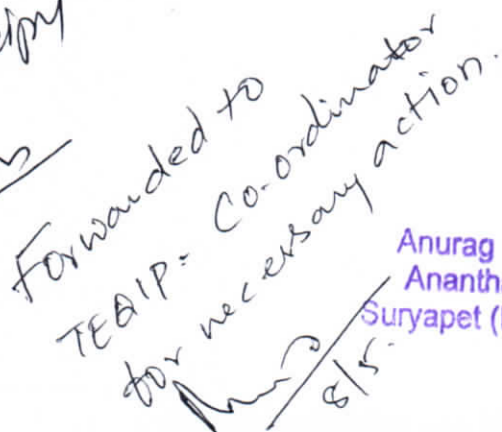 Forwarded to
TEQIP- Co-ordinator
for necessary action.
8/5.
Anurag
Ananth
Suryapet (